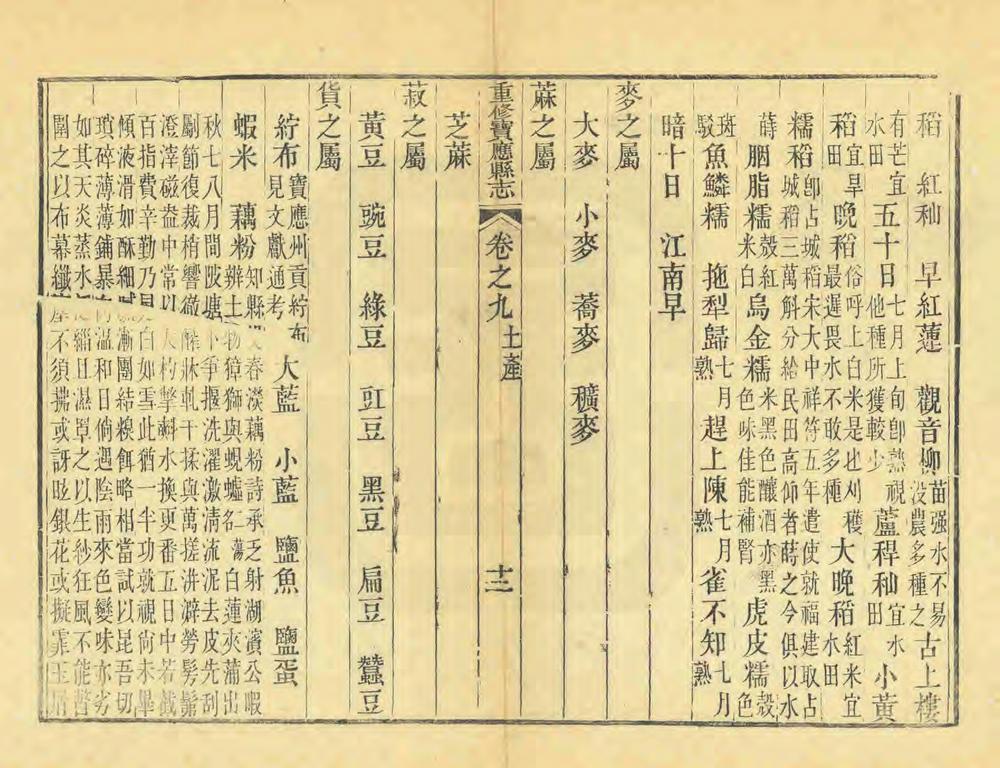 稻 紅秈 早紅蓮 觀音柳苗强水不易没農多種之古上樓
有芒宜水田五十日七月上旬卽熟視他種所獲較少蘆稈秈宜水田小黃
稻宜旱田晚稻俗呼上白米是也刈穫最遲畏水不敢多種大晚稻紅米宜水田
糯稻卽占城稻宋大中祥符五年遣使就福建取占城稻三萬斛分給民田高仰者蒔之今俱以水
蒔胭脂糯殼紅米白烏金糯米黑色釀酒亦黑色味佳能補腎虎皮糯殼色
斑駁魚鱗糯 拖犁歸七月熟趕上陳七月熟雀不知七月熟
暗十日 江南早
麥之屬
大麥 小麥 蕎麥 穬麥
蔴之屬
芝蔴
重修寶應縣志 卷之九土產 十三
菽之屬
黃豆 豌豆 綠豆 豇豆 黑豆 扁豆 蠶豆
貨之屬
紵布寶應州貢紵布見文獻通考 大藍 小藍 鹽魚 鹽蛋
蝦米 藕粉知縣春淡藕粉詩承乏射湖濱公暇辨土物獐獅與蜆蠦名蕩白蓮夾蒲出
秋七八月間陂塘爭揠洗濯激清流泥去皮先刮劚節復裁梢響徹醡牀軋干揉與萬搓洴澼勞髣髴
澄滓磁益中常以杓擊㪺水換更番五日中若截百指費辛勤乃白如雪此猶一半功就視尙未畢
傾液滑如酥細漸團結糗餌略相當試以昆吾切瑣碎薄薄鋪暴溫和日倘遇陰雨來色變味亦劣
如其天炎蒸水緇且濕罩之以生紗狂風不能瞥圍之以布幕纖塵不須拂或訝眩銀花或擬霏玉屑